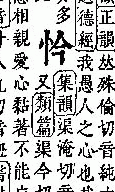 正韻𠀤殊倫切音純
道德經我愚人之心也
多
忴
集韻渠淹切音
又類篇渠今切
相親愛心黏著不能